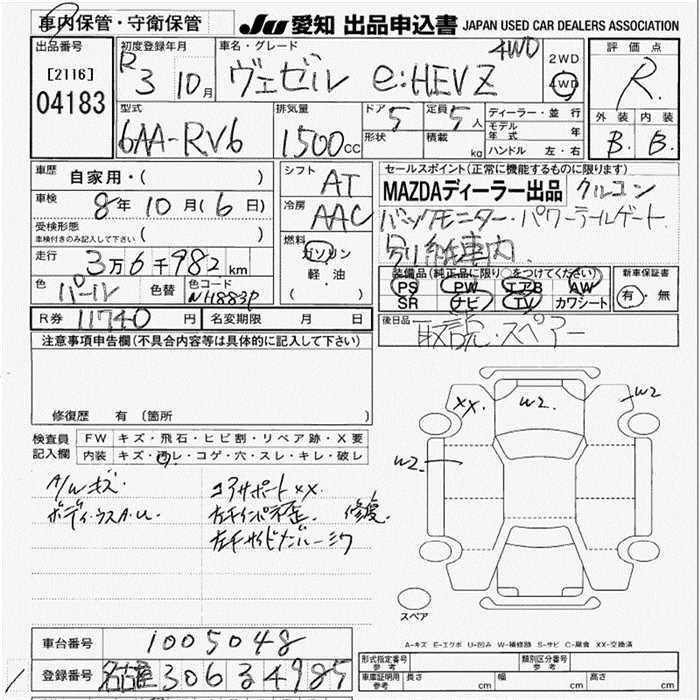 車内保管・守衛保管
JU 愛知 出品申込書 JAPAN USED CAR DEALERS ASSOCIATION
出品番号
[2116]
04183
初度登録年月
R3 10月
車名・グレード
ヴェゼル e:HEV Z 4WD
2WD
4WD
評価点
R
外装 内装
B. B.
型式
6AA-RV6
排気量
1500cc
ドア 5
形状
定員 5人
積載 kg
ディーラー・並行
モデル年式 年
ハンドル 左・右
車歴 自家用・( )
車検 8年10月(6日)
受検形態
車検付きのみ記入して下さい ( )
走行 3万6千982km
色 パール 色替 色コード NH883P
シフト AT
冷房 AAC
燃料 ガソリン
軽・油
( )
セールスポイント(正常に機能するものに限ります)
MAZDAディーラー出品 クルコン
バックモニター・パワーテールゲート
装備品(純正品に限り○をつけてください)
PS PW エアB AW
SR ナビ TV カワシート
新車保証書
有・無
R券 11740円 名変期限 月 日
後日品 取説・スペアー
注意事項申告欄(不具合内容等は具体的に記入して下さい)
修復歴 有 (箇所
検査員記入欄
FW キズ・飛石・ヒビ割・リペア跡・X要
内装 キズ・汚レ・コゲ・穴・スレ・キレ・破レ
A/Wキズ
ボディ・ウスA.U
コアサポートXX.
左インパネ歪. 修復
XX.
W2.
W2
W2
スペア
A-キズ E-エクボ U-凹み W-補修跡 S-サビ C-腐食 XX-交換済
車台番号 1005048
登録番号 名古屋 306 る 4985
形式指定番号 参考
類別区分番号 参考
車庫証明用 参考 長さ cm 幅 cm 高さ cm